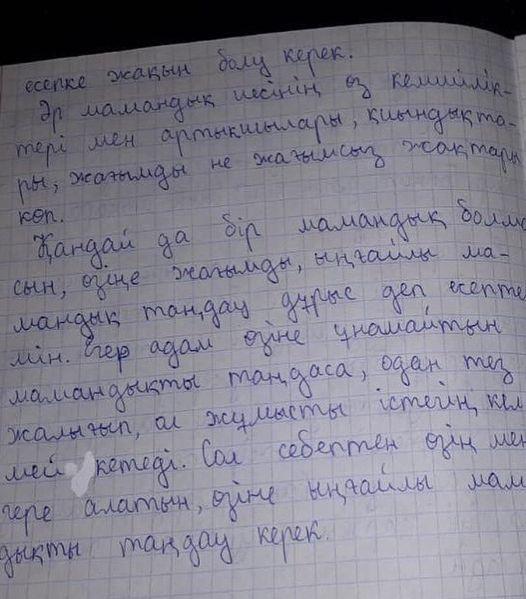 есепке жақын болу керек.
Әр мамандық иесінің өз кемшілік-
тері мен артықшылары, қиындықта-
ры, жағымды не жағымсыз жақтары
көп.
Қандай да бір мамандық болма
сын, өзіңе жағымды, ыңғайлы ма-
мандық таңдау дұрыс деп есепте
мін. Егер адам өзіне ұнамайтын
мамандықты таңдаса, одан тез
жалығып, ол жұмысты істегің кел
мей кетеді. Сол себептен өзің мең
гере алатын, өзіңе ыңғайлы мам
дықты таңдау керек.